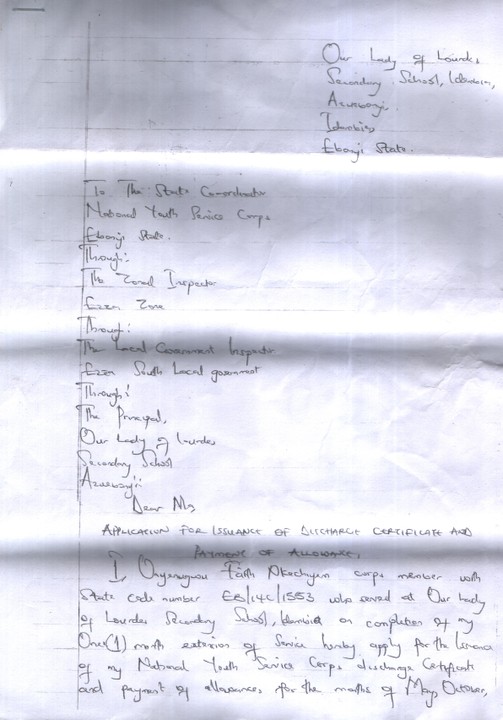 Our Lady of Lourdes
Secondary School, Idembia,
Azuebonyi,
Idembia,
Ebonyi State.
To The State Coordinator
National Youth Service Corps
Ebonyi State.
Through:
The Zonal Inspector
Ezza Zone
Through:
The Local Government Inspector
Ezza South Local government
Through:
The Principal,
Our Lady of Lourdes
Secondary School
Dear Ma,
APPLICATION FOR ISSUANCE OF DISCHARGE CERTIFICATE AND
PAYMENT OF ALLOWANCE,
I Faith corps member with
State code number EB/14C/1553 who served at Our Lady
of Lourdes Secondary School, Idembia on completion of my
One(1) month extension of Service hereby apply for the Issuance
of my National Youth Service Corps discharge Certificate
and payment of allowances for the months of May, October,